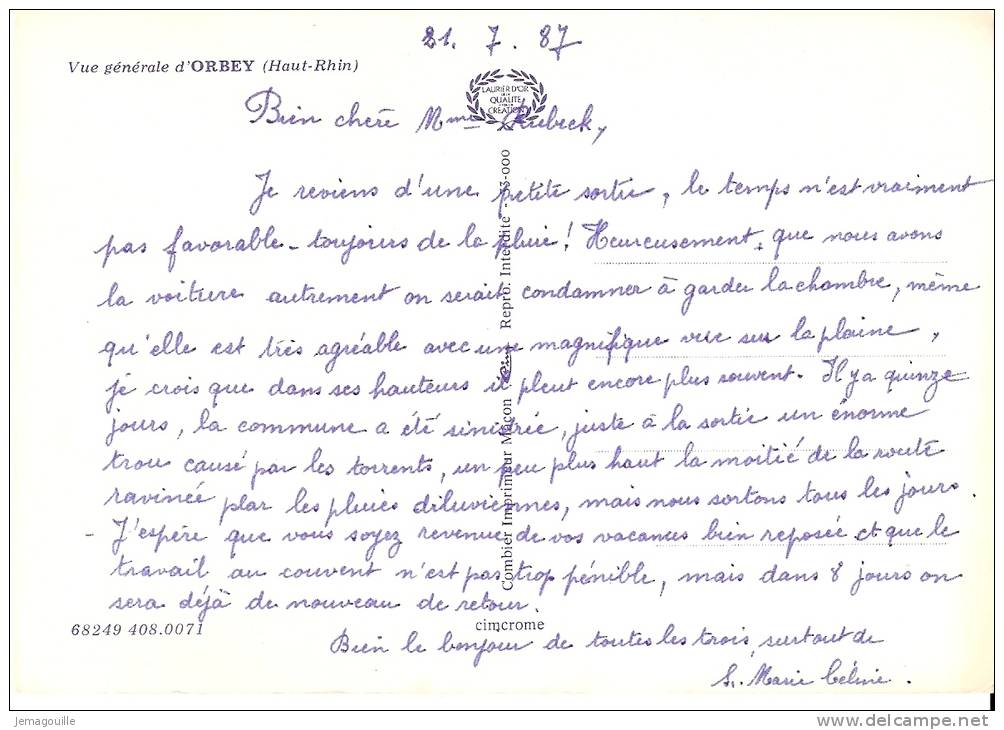 21.7.87
Vue générale d'ORBEY (Haut-Rhin)
LAURIER D'OR
DE LA
QUALITÉ
CRÉATION
Bien chère Mme
Je reviens d'une petite sortie, le temps n'est vraiment
pas favorable - toujours de la pluie! Heureusement, que nous avons
la voiture autrement on serait condamner à garder la chambre, même
qu'elle est très agréable avec une magnifique vue sur la plaine,
je crois que dans ses hauteurs il pleut encore plus souvent. Il y a quinze
jours, la commune a été sinistrée, juste à la sortie un énorme
trou causé par les torrents, un peu plus haut la moitié de la route
ravinée plar les pluies diluviennes, mais nous sortons tous les jours.
- J'espère que vous soyez revenue de vos vacances bien reposée et que le
travail au couvent n'est pas trop pénible, mais dans 8 jours on
sera déjà de nouveau de retour.
Bien le bonjour de toutes les trois, surtout de
S. Marie Céline.
Combier Imprimeur Macon Reprod. Interdite - 53-000
68249 408.0071
cimcrome
Jemagouille
www.delcampe.net